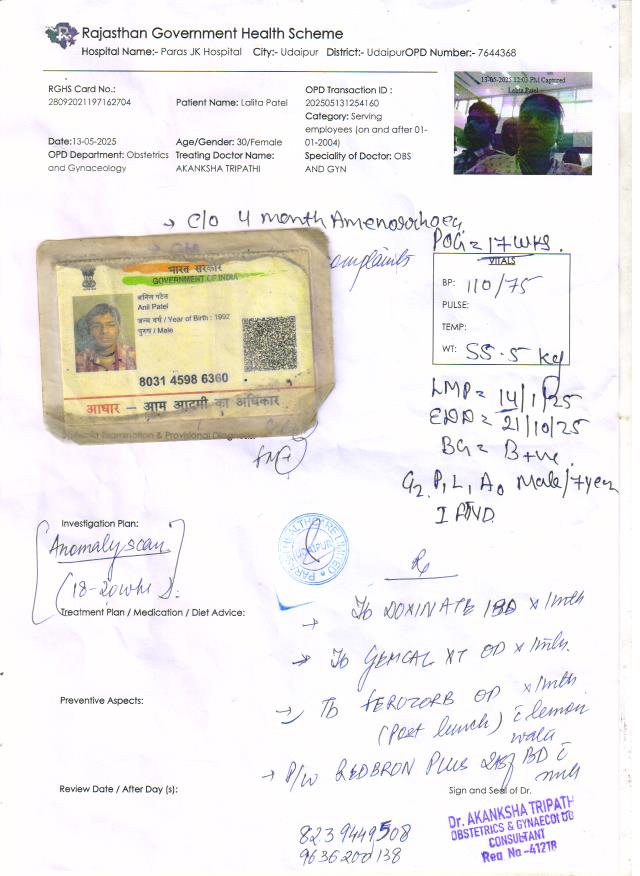 Rajasthan Government Health Scheme
Hospital Name:- Paras JK Hospital City:- Udaipur District:- UdaipurOPD Number:- 7644368
RGHS Card No.:
28092021197162704
Patient Name: Lalita Patel
OPD Transaction ID :
202505131254160
Category: Serving
employees (on and after 01-
01-2004)
Date:13-05-2025
OPD Department: Obstetrics
and Gynaceology
Age/Gender: 30/Female
Treating Doctor Name:
AKANKSHA TRIPATHI
Speciality of Doctor: OBS
AND GYN
13-05-2025 12:03 PM Captured
Lalita Patel
→ C/o 4 month Amenorrhoea
omplaints
POG = 17 wks.
VITALS
BP: 110/75
PULSE:
TEMP:
WT: 55.5 kg
भारत सरकार
GOVERNMENT OF INDIA
अनिल पटेल
Anil Patel
जन्म वर्ष / Year of Birth : 1992
पुरुष / Male
8031 4598 6360
आधार – आम आदमी का अधिकार
Examination & Provisional Diagn
LMP = 14/1/25
EDD = 21/10/25
BG = B+ve
G2 P1 L1 A0 Male/7year
Investigation Plan:
Anomaly scan
(18-20wks).
PARAS HEALTHCARE LIMITED
UDAIPUR
Rx
Treatment Plan / Medication / Diet Advice:
→ Tb DOXINATE BD x 1mth
→ Tb GEMCAL XT OD x 1mth.
Preventive Aspects:
→ Tb FEROZORB OD x 1mth
(Post lunch) c lemon
wala
→ P/w REDBRON PLUS BD c
milk
Review Date / After Day (s):
Sign and Seal of Dr.
8239449508
9636200138
Dr. AKANKSHA TRIPATH
OBSTETRICS & GYNAECOLOG
CONSULTANT
Reg No-41218